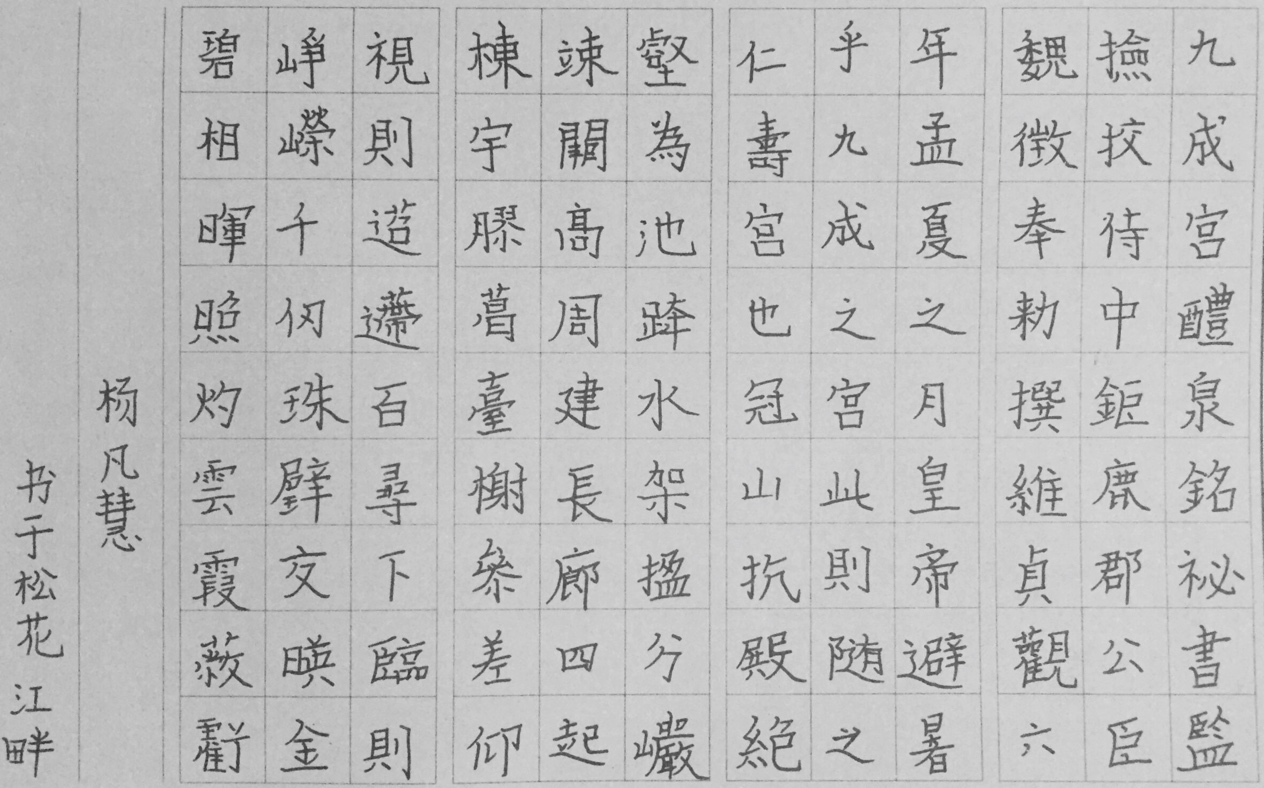 九成宮醴泉銘祕書監
撿挍侍中鉅鹿郡公臣
魏徵奉勅撰維貞觀六
年孟夏之月皇帝避暑
乎九成之宮此則随之
仁壽宮也冠山抗殿絶
壑為池跨水架楹分巖
竦闕高周建長廊四起
棟宇膠葛臺榭參差仰
視則迢遰百尋下臨則
崢嶸千仞珠壁交暎金
碧相暉照灼雲霞蔽虧
杨凡慧
书于松花江畔